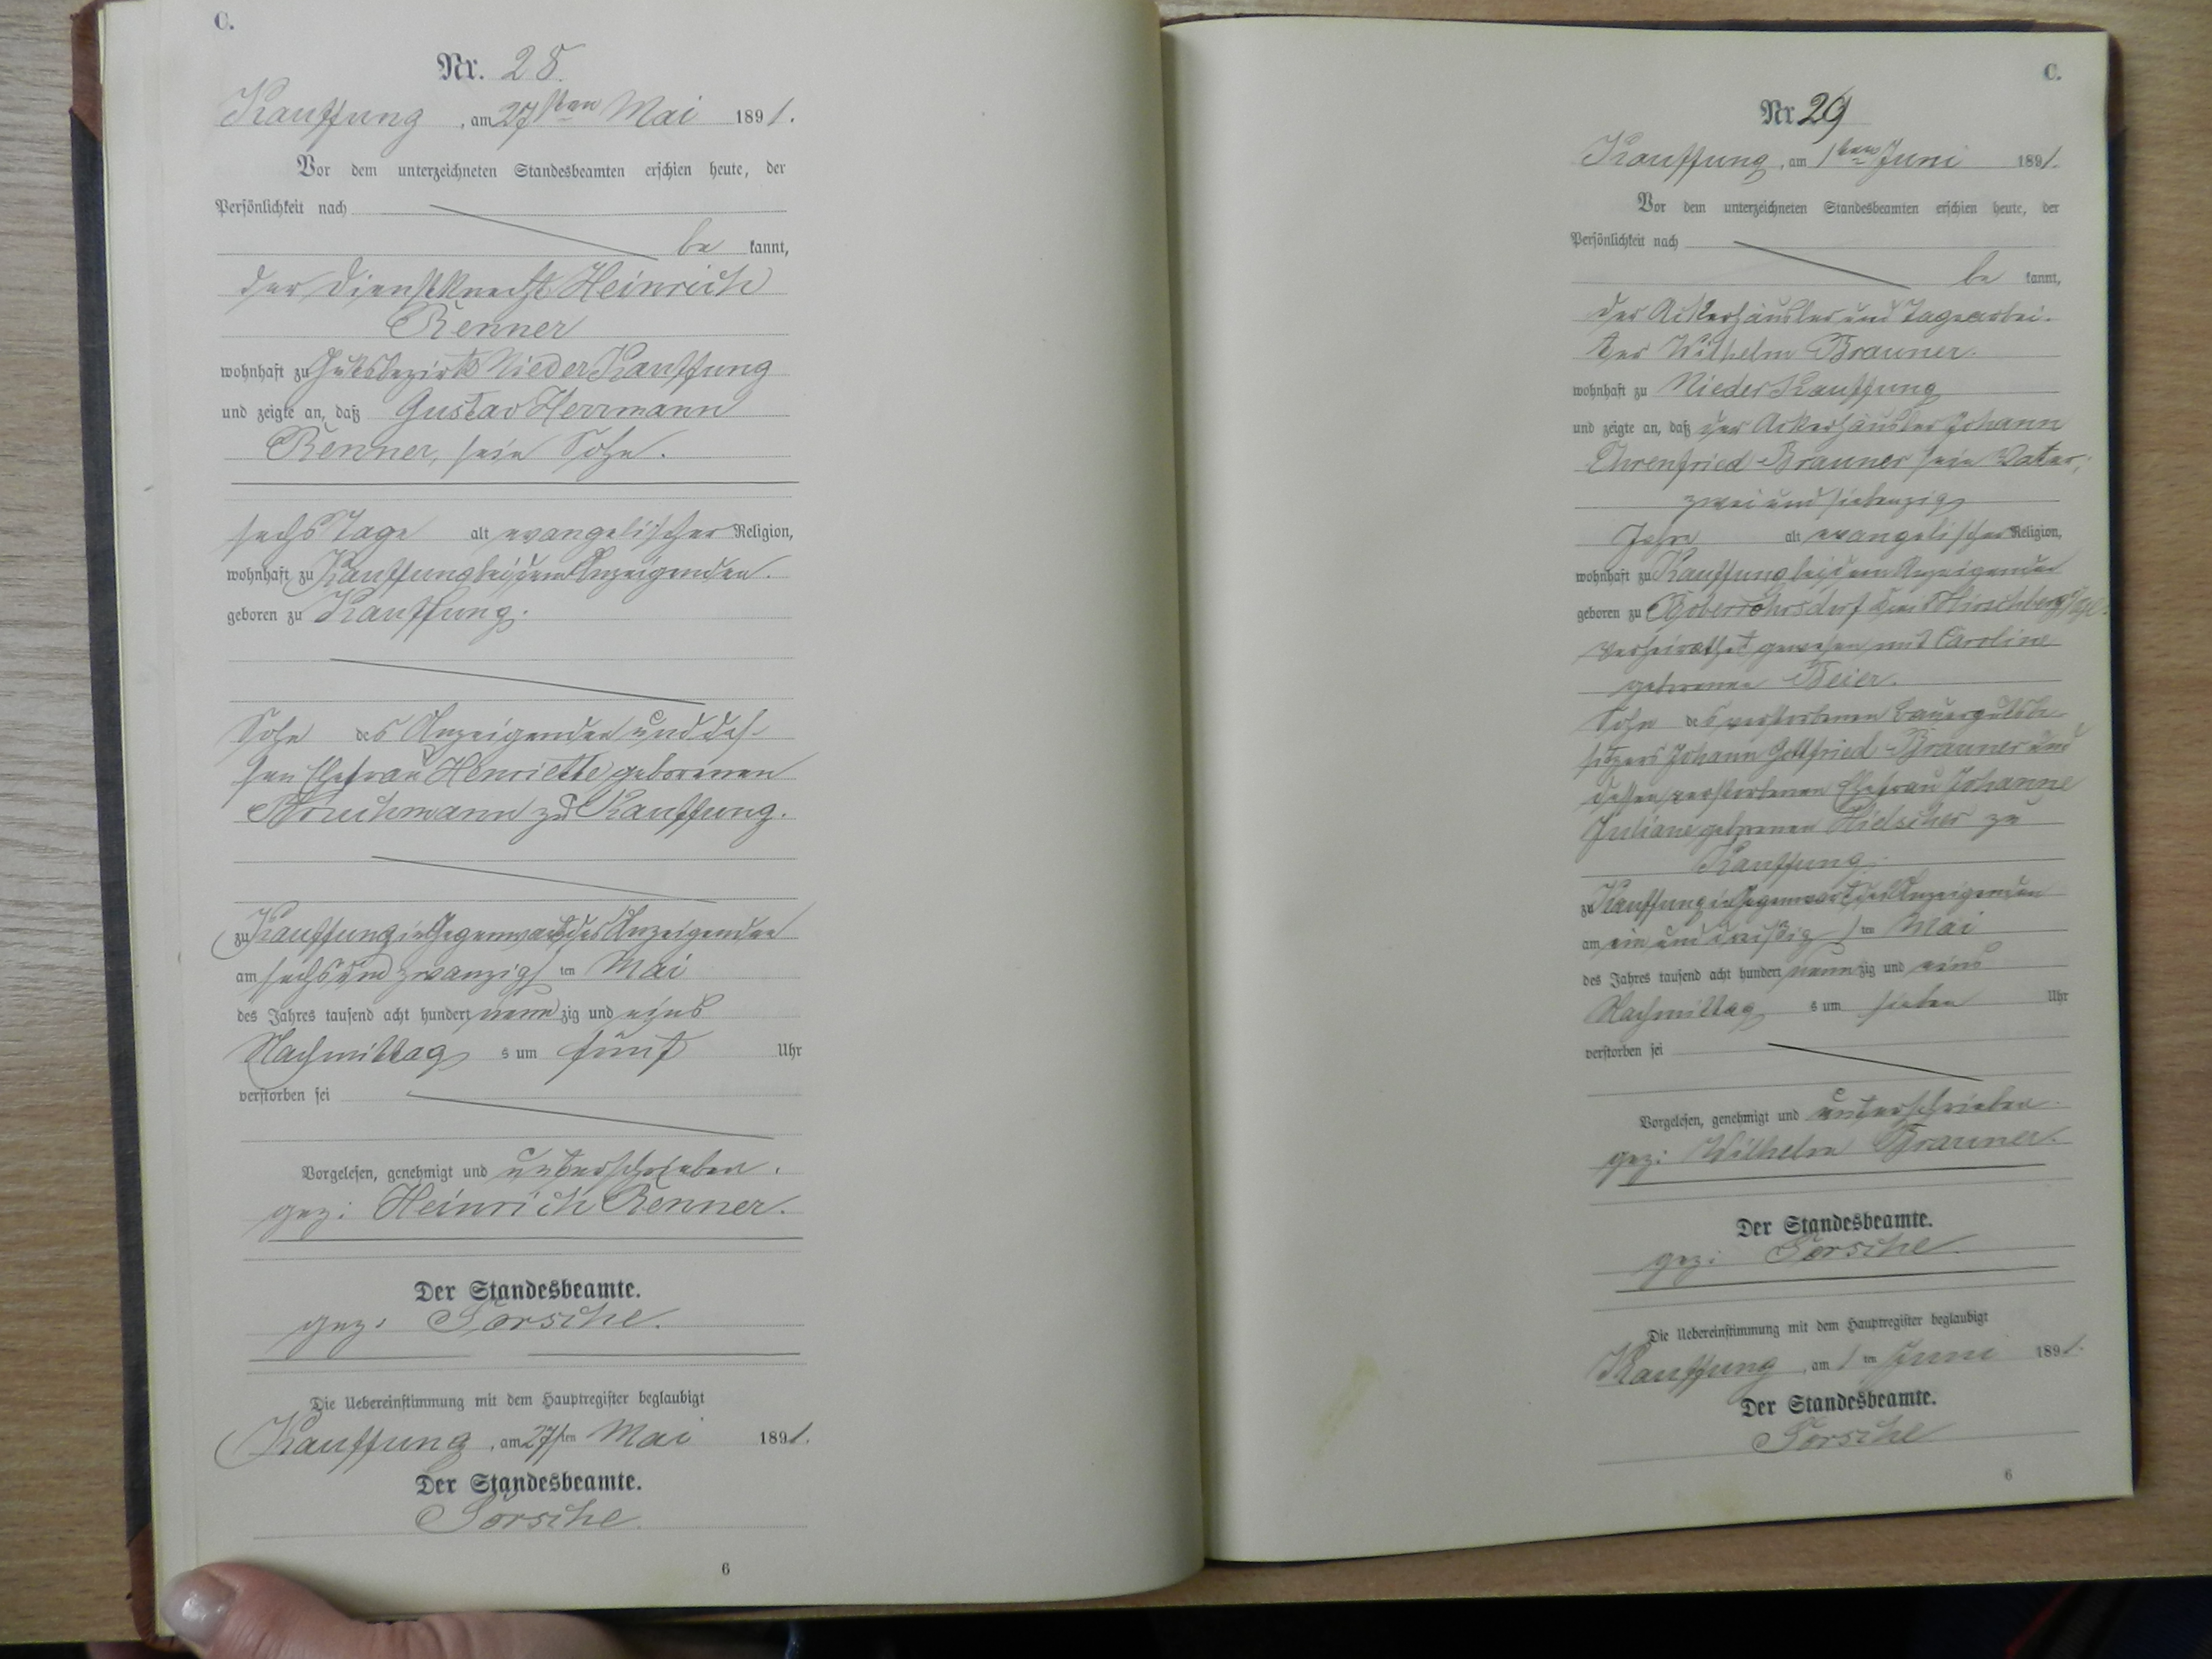 C.
Nr. 28.
Kauffung, am 27sten Mai 1891.
Vor dem unterzeichneten Standesbeamten erschien heute, der
Persönlichkeit nach
be kannt,
der Dienstknecht Heinrich
Renner
wohnhaft zu Gutsbezirk Nieder Kauffung
und zeigte an, daß Gustav Herrmann
Renner, sein Sohn.
sechs Tage alt evangelischer Religion,
wohnhaft zu Kauffung bei dem Anzeigenden.
geboren zu Kauffung.
Sohn des Anzeigenden und des-
sen Ehefrau Henriette geborenen
zu Kauffung.
zu Kauffung in Gegenwart des Anzeigenden
am sechs und zwanzigsten Mai
des Jahres tausend acht hundert neunzig und eins
Nachmittags um fünf Uhr
verstorben sei
Vorgelesen, genehmigt und unterschrieben.
gez: Heinrich Renner.
Der Standesbeamte.
gez:
Die Uebereinstimmung mit dem Hauptregister beglaubigt
Kauffung, am 27sten Mai 1891.
Der Standesbeamte.
6
C.
Nr. 29
Kauffung, am 1ten Juni 1891.
Vor dem unterzeichneten Standesbeamten erschien heute, der
Persönlichkeit nach
be kannt,
der Ackerhäusler und Tagearbei-
ter Wilhelm Brauner.
wohnhaft zu Nieder Kauffung
und zeigte an, daß der Ackerhäusler Johann
Ehrenfried Brauner sein Vater,
zwei und siebenzig
Jahre alt evangelischer Religion,
wohnhaft zu Kauffung bei dem Anzeigenden
geboren zu Boberröhrsdorf Kreis Hirschberg
verheirathet gewesen mit Caroline
geborenen Beier.
Sohn des verstorbenen Bauergutsbe-
sitzers Johann Gottfried Brauner und
dessen verstorbenen Ehefrau Johanne
Juliane geborenen Hielscher zu
Kauffung.
zu Kauffung in Gegenwart des Anzeigenden
am ein und dreißigsten Mai
des Jahres tausend acht hundert neunzig und eins
Nachmittags um sieben Uhr
verstorben sei
Vorgelesen, genehmigt und unterschrieben.
gez: Wilhelm Brauner.
Der Standesbeamte.
gez:
Die Uebereinstimmung mit dem Hauptregister beglaubigt
Kauffung, am 1ten Juni 1891.
Der Standesbeamte.
6